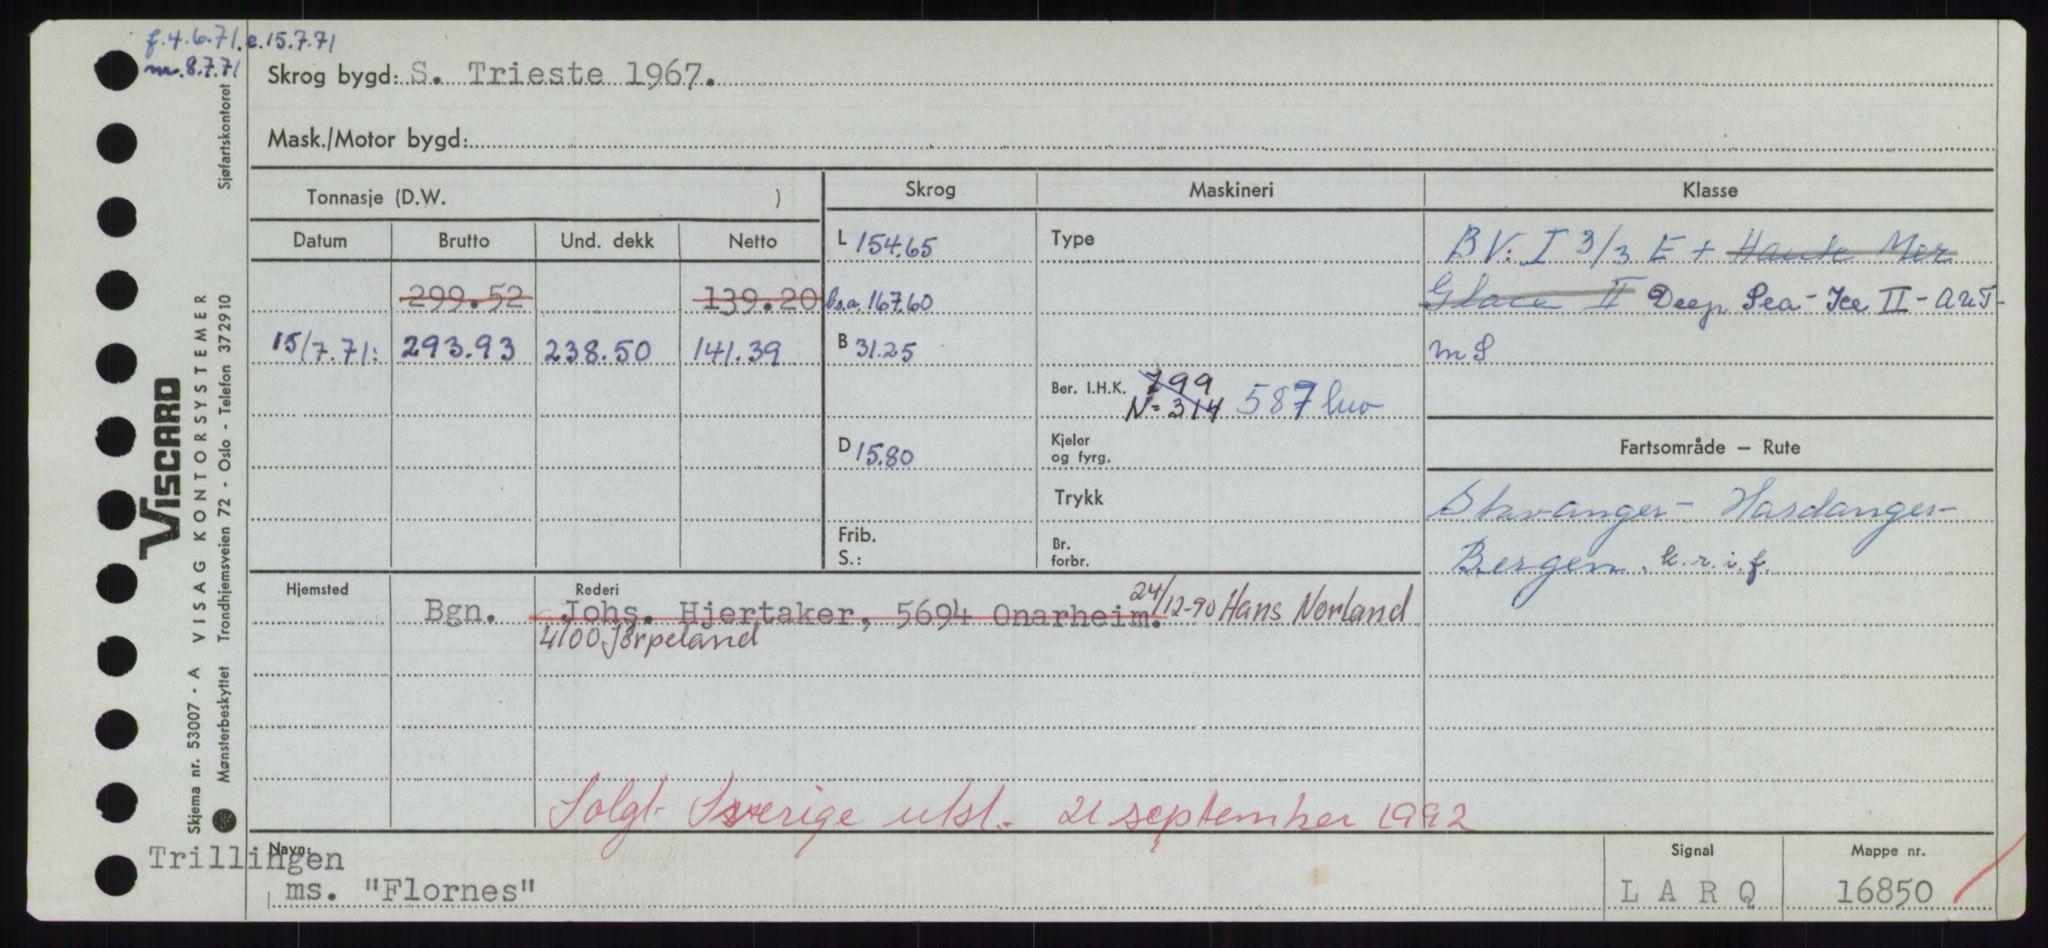 f. 4.6.71. e. 15.7.71
m. 8.7.71
Skrog bygd: S. Trieste 1967.
Mask./Motor bygd:
Tonnasje (D.W. )
Skrog
Maskineri
Klasse
Datum Brutto Und. dekk Netto
299.52 139.20
15/7.71: 293.93 238.50 141.39
L 154.65
b.a. 167.60
B 31.25
D 15.80
Frib.
S.:
Type
Ber. I.H.K. 799
N= 314 587
Kjeler
og fyrg.
Trykk
Br.
forbr.
BV. I 3/3 E + Haute Mer
Glace II Deep Sea - Ice II - AUT-
MS
Fartsområde — Rute
Stavanger - Hardanger-
Bergen. k.r.i.f.
Hjemsted Rederi
Bgn. Johs. Hjertaker, 5694 Onarheim. 24/12-90 Hans Norland
4100 Jørpeland
Solgt Sverige utsl. 21 september 1992
Navn:
Trillingen
ms. "Flornes"
Signal
L A R Q
Mappe nr.
16850
VISCARD
Skjema nr. 53007 - A VISAG KONTORSYSTEMER Sjøfartskontoret
Mønsterbeskyttet Trondhjemsveien 72 - Oslo - Telefon 37 29 10